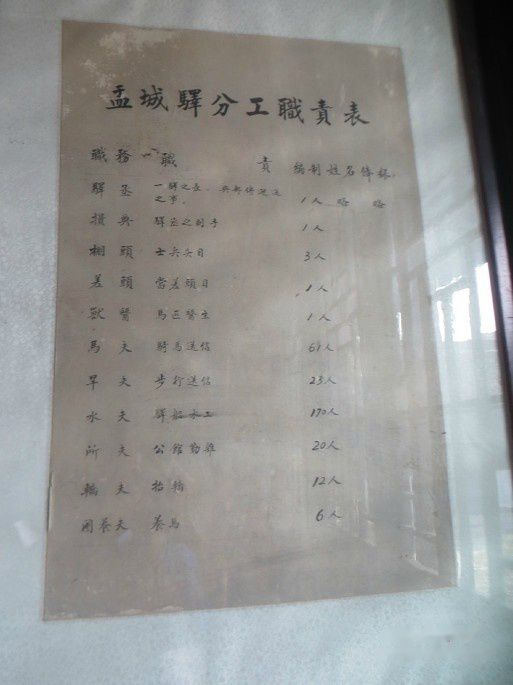 盂城驛分工職責表
職務 職 責 編制 姓名 俸祿
驛丞 一驛之長、 1人 略 略
之事。
攢典 驛丞之副手 1人
棚頭 士兵头目 3人
差頭 當差頭目 1人
獸醫 馬匹醫生 1人
馬夫 騎馬送信 61人
旱夫 步行送信 23人
水夫 驛船水工 170人
所夫 公館勤雜 20人
轎夫 抬轎 12人
圉養夫 養馬 6人